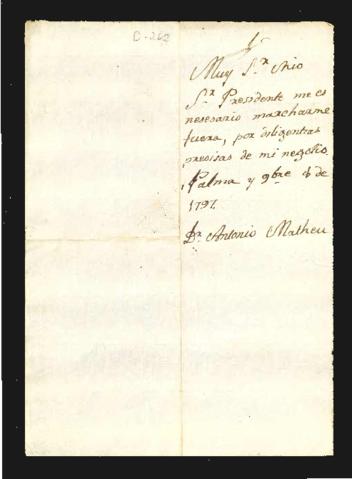 D-262
Muy S.r Mio
S.r Presidente me es
nesesario marcharme
fuera, por diligentias
presisas de mi negosio,
Palma y 9bre de
1797.
Dr. Antonio Matheu